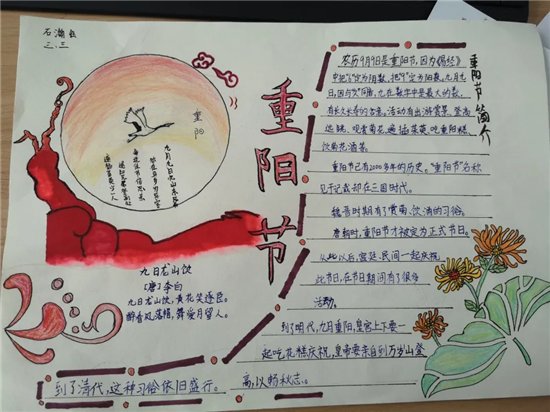 石瀚
三.三
重阳
九月九日忆山东兄弟
独在异乡为异客
每逢佳节倍思亲
遥知兄弟登高处
遍插茱萸少一人
九日龙山饮
(唐)李白
九日龙山饮，黄花笑逐臣。
醉看风落帽，舞爱月留人。
重阳节
重阳节简介
农历9月9日是重阳节，因为《易经》
中把"6"定为阴数，把"9"定为阳数，九月九
日，因与"久"同音，九在数字中是最大的数，
有长久长寿的含意，活动有出游赏景、登高
远眺、观赏菊花、遍插茱萸、吃重阳糕、
饮菊花酒等。
重阳节已有2000多年的历史。"重阳节"名称
见于记载却在三国时代。
魏晋时期有了赏菊、饮酒的习俗。
唐朝时，重阳节才被定为正式节日。
从此以后，宫廷、民间一起庆祝
此节日，在节日期间有了很多
活动。
到了明代，九月重阳，皇宫上下要一
起吃花糕庆祝，皇帝要亲自到万岁山登
高，以畅秋志。
到了清代，这种习俗依旧盛行。